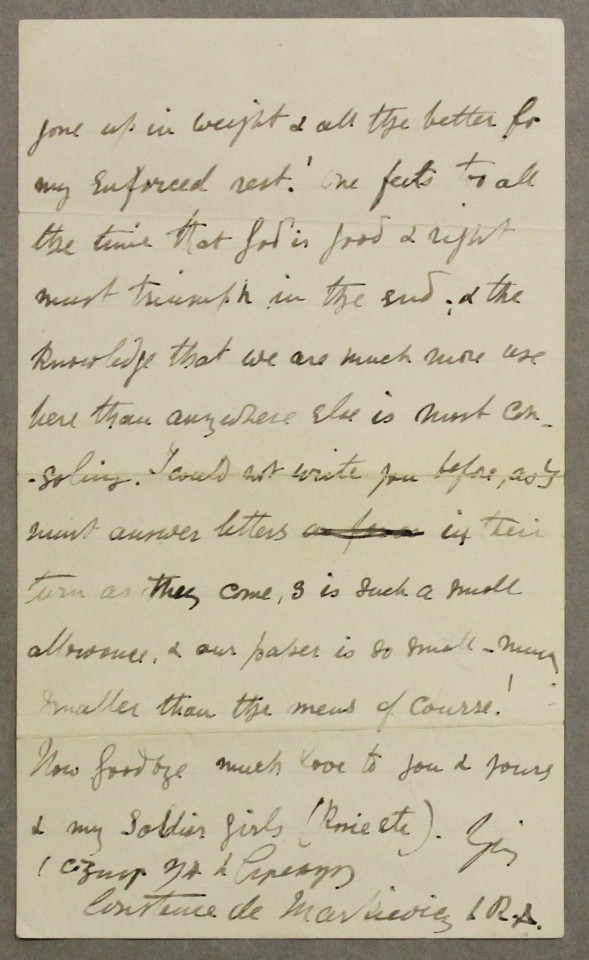 gone up in weight & all the better for
my enforced rest! One feels to all
the time that God is good & right
must triumph in the end, & the
knowledge that we are much more use
here than anywhere else is most con-
-soling. I could not write you before, as I
must answer letters in their
turn as they come, 3 is such a small
allowance, & our paper is so small - much
smaller than the mens of course!
Now Goodbye much love to you & yours
& my Soldier girls (Rosie etc).
Constance de Markievicz I.R.A.